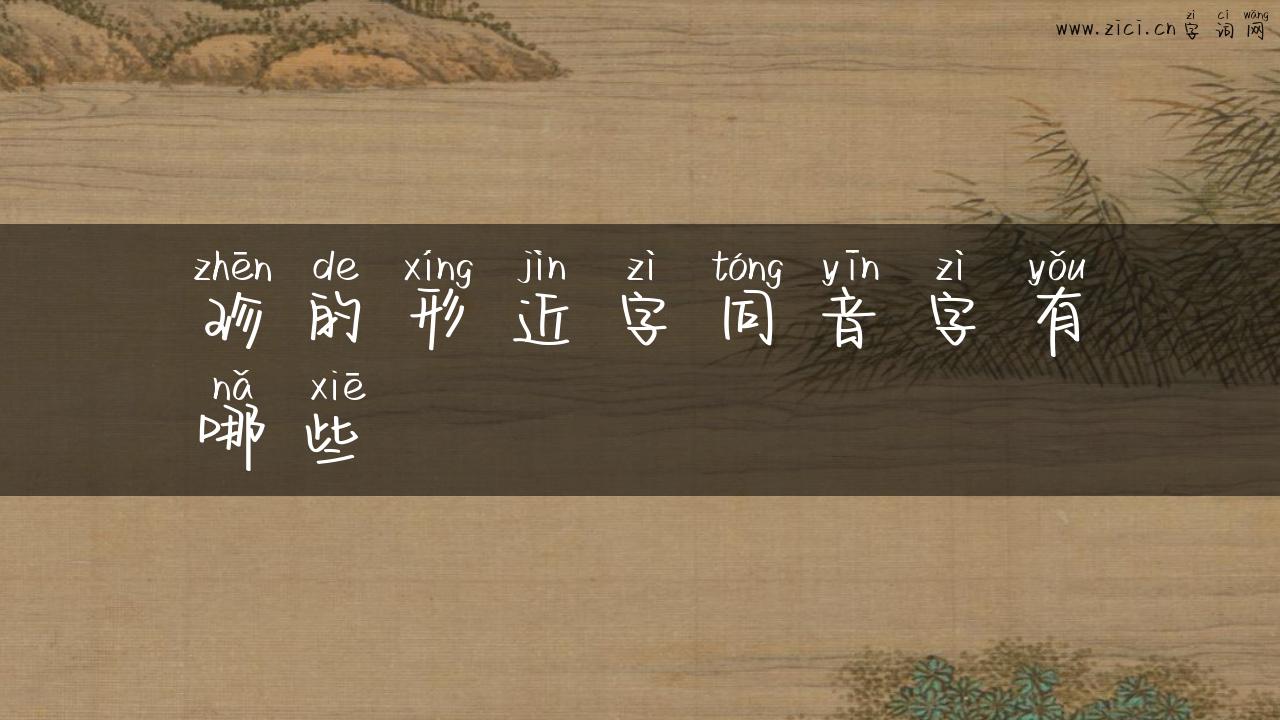 zi ci wǎng
www.zici.cn 字词网
zhēn de xíng jìn zì tóng yīn zì yǒu
珍的形近字同音字有
nǎ xiē
哪些